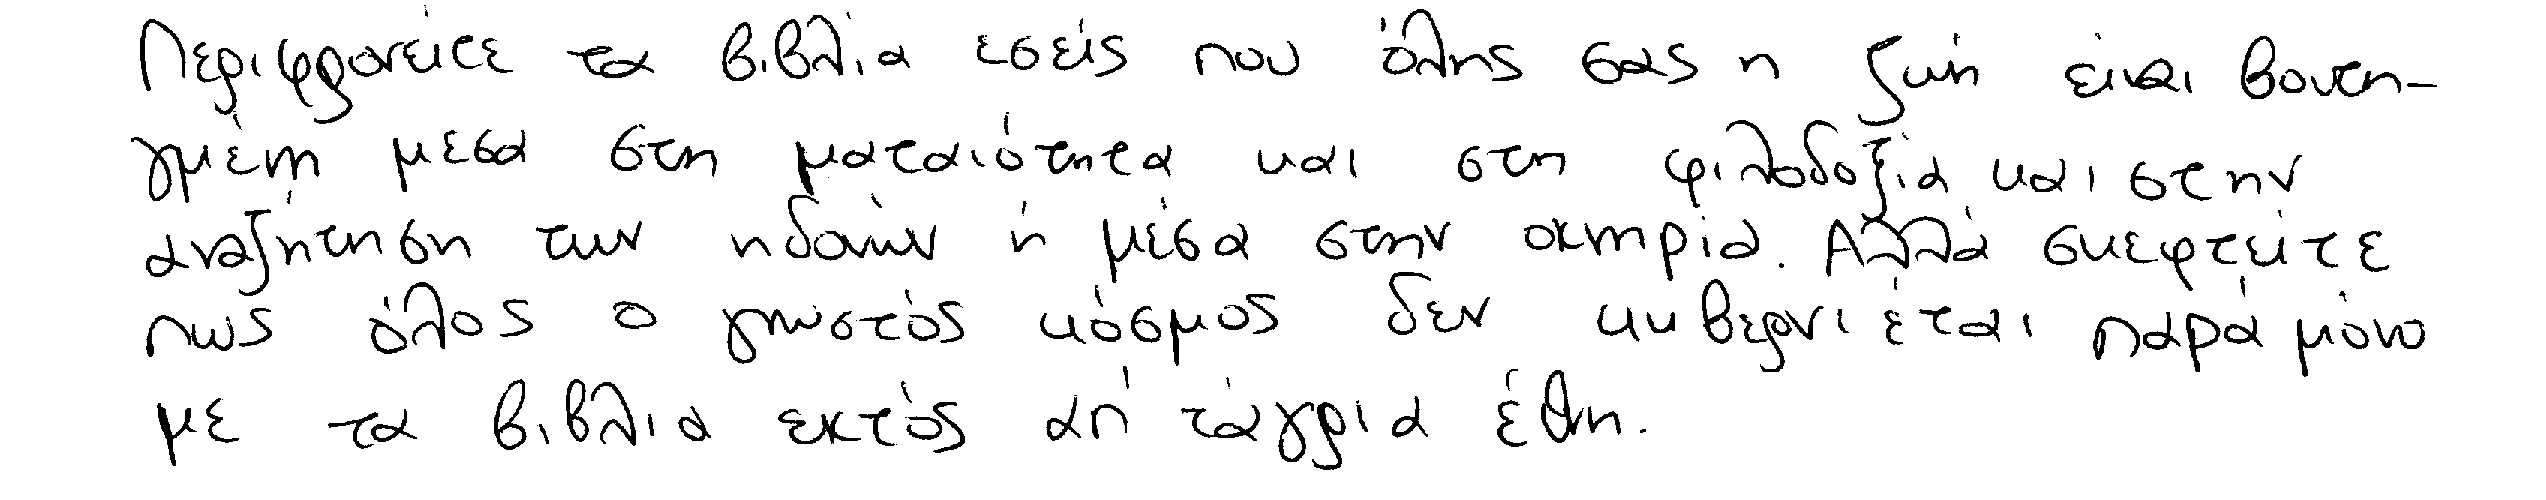 Περιφρονείτε τα βιβλία εσείς που όλης σας η ζωή είναι βουτη-
γμένη μέσα στη ματαιότητα και στη φιλοδοξία και στην
αναζήτηση των ηδονών ή μέσα στην οκνηρία. Αλλά σκεφτείτε
πως όλος ο γνωστός κόσμος δεν κυβερνιέται παρά μόνο
με τα βιβλία εκτός απ' τάγρια έθνη.